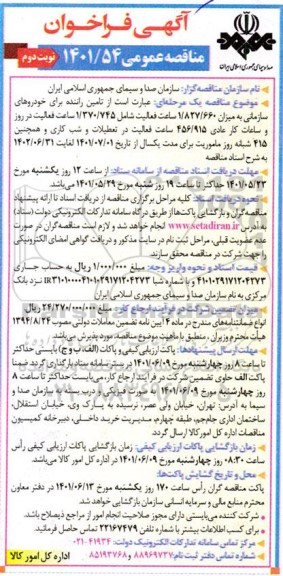 آگهی فراخوان
مناقصه عمومی ۱۴۰۱/۵۴
نوبت دوم
صدا و سیمای جمهوری اسلامی ایران
نام سازمان مناقصه‌گزار: سازمان صدا و سیمای جمهوری اسلامی ایران
موضوع مناقصه یک مرحله‌ای: عبارت است از تأمین راننده برای خودروهای
سازمانی به میزان ۱/۸۲۷/۶۶۰ ساعت فعالیت شامل ۱/۳۷۰/۷۴۵ ساعت فعالیت در روز
و ساعات کار عادی ۴۵۶/۹۱۵ ساعت فعالیت در تعطیلات و شب کاری و همچنین
۴۱۵ شبانه روز ماموریت برای مدت یکسال از تاریخ ۱۴۰۱/۰۷/۰۱ لغایت ۱۴۰۲/۰۶/۳۱
به شرح اسناد مناقصه
مهلت دریافت اسناد مناقصه از سامانه ستاد: از ساعت ۱۲ روز یکشنبه مورخ
۱۴۰۱/۰۵/۲۳ حداکثر تا ساعت ۱۹ روز شنبه مورخ ۱۴۰۱/۰۵/۲۹ می‌باشد.
نحوه دریافت اسناد: کلیه مراحل برگزاری مناقصه از دریافت اسناد تا ارائه پیشنهاد
مناقصه‌گران و بازگشایی پاکت‌ها از طریق درگاه سامانه تدارکات الکترونیکی دولت (ستاد)
به آدرس www.setadiran.ir انجام خواهد شد و لازم است مناقصه‌گران در صورت
عدم عضویت قبلی، مراحل ثبت نام در سایت مذکور و دریافت گواهی امضای الکترونیکی
را جهت شرکت در مناقصه محقق سازند.
قیمت اسناد و نحوه واریز وجه: مبلغ ۱/۰۰۰/۰۰۰ ریال به حساب جاری
نزد بانک
مرکزی به نام سازمان صدا و سیمای جمهوری اسلامی ایران
میزان تضمین شرکت در فرآیند ارجاع کار: مبلغ ۲۴/۲۷۰/۰۰۰/۰۰۰ ریال
انواع ضمانتنامه‌های مندرج در ماده ۴ آیین نامه تضمین معاملات دولتی مصوب ۱۳۹۴/۸/۲۴
هیأت محترم وزیران، منطبق با ماهیت موضوع مناقصه، مورد پذیرش می‌باشد.
مهلت ارسال پیشنهادها: پاکت ارزیابی کیفی و پاکات (الف، ب و ج) بایستی حداکثر
تا ساعت ۸ روز چهارشنبه مورخ ۱۴۰۱/۰۶/۰۹ در بستر سامانه ستاد بارگذاری گردد ضمنا
پاکت الف حاوی تضمین شرکت در فرآیند ارجاع کار، می‌بایست حداکثر تا ساعت ۸
روز چهارشنبه مورخ ۱۴۰۱/۰۶/۰۹ به صورت فیزیکی و درب بسته به سازمان صدا و
سیما به آدرس: تهران، خیابان ولی عصر، نرسیده به پارک وی، خیابان استقلال،
ساختمان اداری جام‌جم، طبقه چهارم، مدیریت خرید داخلی، دبیرخانه کمیسیون
مناقصات اداره کل امور کالا ارسال گردد.
زمان بازگشایی پاکات ارزیابی کیفی: زمان بازگشایی پاکات ارزیابی کیفی رأس
ساعت ۰۸:۳۰ روز چهارشنبه مورخ ۱۴۰۱/۰۶/۰۹ در اداره کل امور کالا می‌باشد.
محل و تاریخ گشایش پاکت‌ها:
پاکت مناقصه گران رأس ساعت ۱۷۰ روز یکشنبه مورخ ۱۴۰۱/۰۶/۱۳ در دفتر معاون
محترم منابع مالی و سرمایه انسانی سازمان بازگشایی خواهد شد.
شرکت کننده می‌بایستی دارای مجوز صلاحیت انجام امور از مراجع ذیصلاح باشد.
برای کسب اطلاعات بیشتر با شماره تلفن ۲۲۱۶۷۴۷۹ تماس حاصل فرمائید.
مرکز تماس سامانه تدارکات الکترونیک دولت: ۰۲۱-۴۱۹۳۴
شماره تماس دفتر ثبت نام: ۸۸۹۶۹۷۳۷ و ۸۵۱۹۳۷۶۸
اداره کل امور کالا